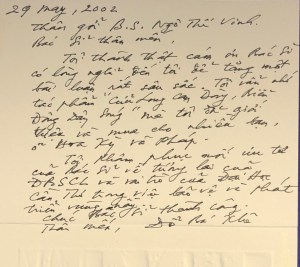 29 May, 2002
Thân gởi B.S. Ngô Thế Vinh,
Bác Sĩ thân mến,
Tôi thành thật cám ơn Bác Sĩ
có lòng nghĩ đến tôi để tặng một
bài luận rất sâu sắc. Tôi vẫn nhớ
tác phẩm "Cửu Long Cạn Dòng, Biển
Đông Dậy Sóng" mà tôi đã giới
thiệu và mua cho nhiều bạn
ở Hoa Kỳ và Pháp.
Tôi khâm phục mối ưu tư
của Bác Sĩ về tương lai của
ĐBSCL và vai trò của Đại Học
Cần Thơ trong viện bảo vệ và phát
triển vùng này.
Chúc Bác Sĩ thành công.
Thân mến, Đỗ Bá Khê